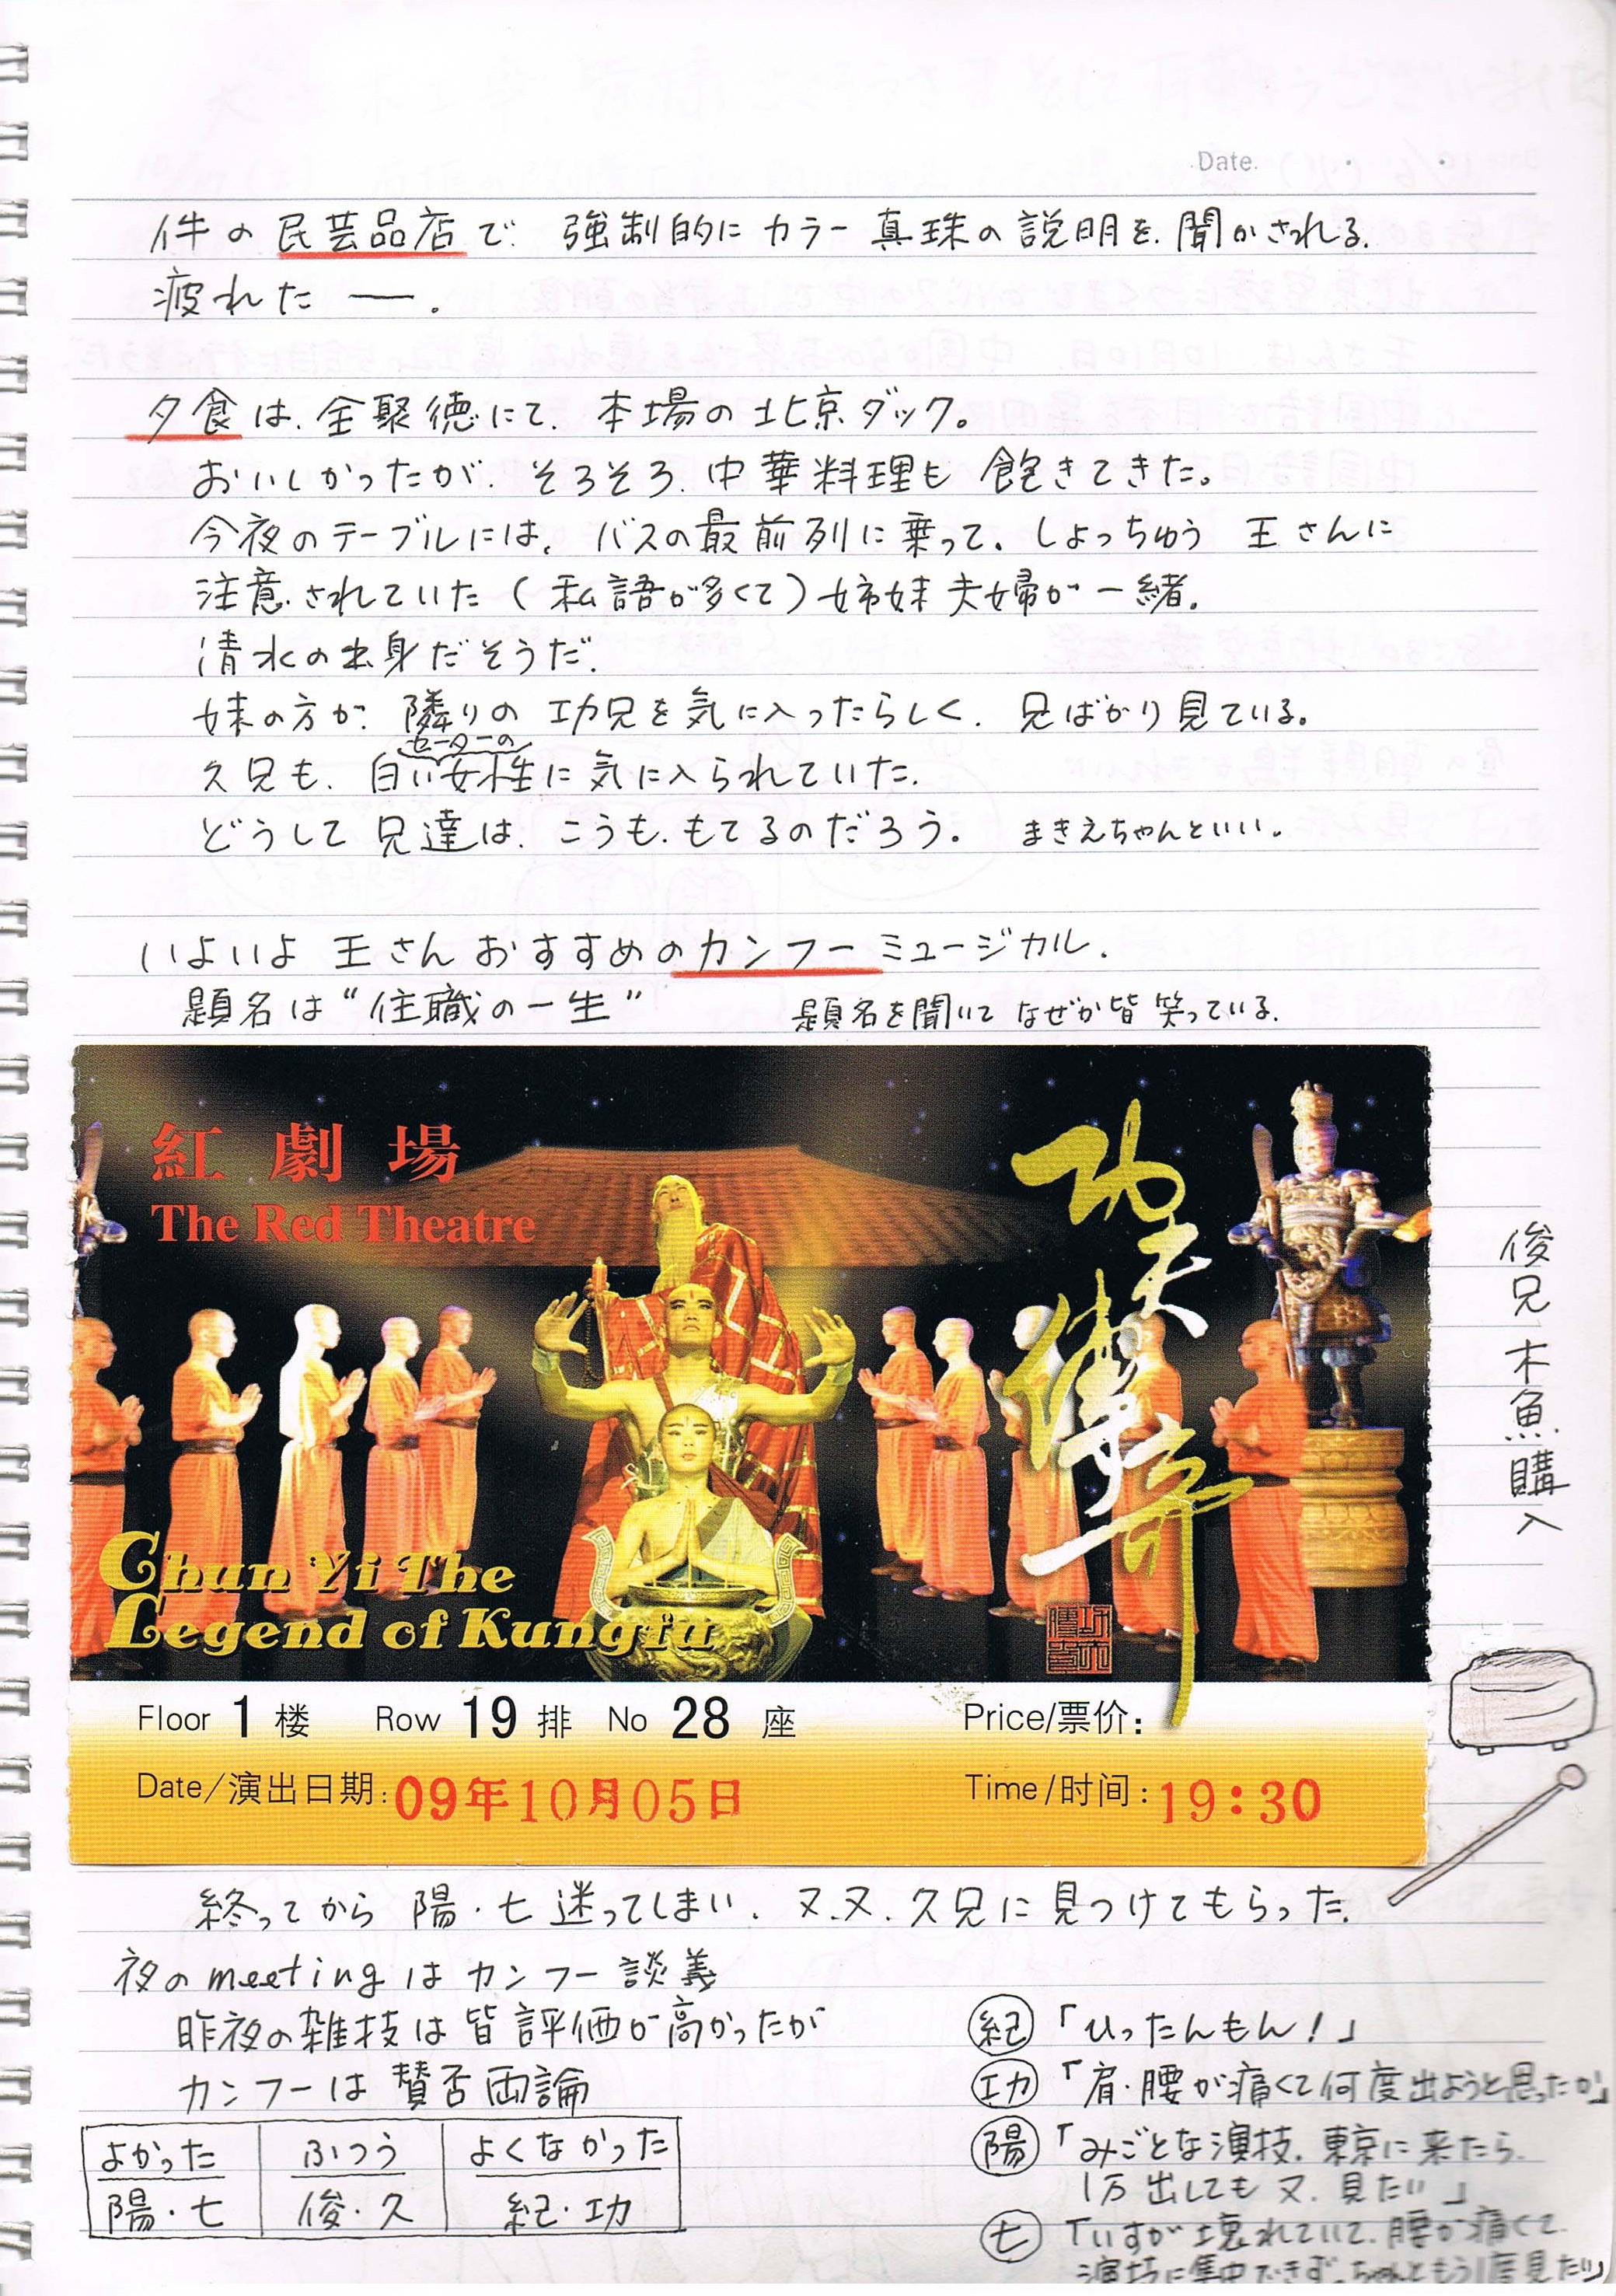 Date.
件の民芸品店で 強制的にカラー真珠の説明を、聞かされる。
疲れたー。
夕食は、全聚徳にて、本場の北京ダック。
おいしかったが、そろそろ、中華料理も 飽きてきた。
今夜のテーブルには、バスの最前列に乗って、しょっちゅう 王さんに
注意されていた(私語が多くて)姉妹夫婦が一緒。
清水の出身だそうだ。
妹の方が、隣りの 功兄を気に入ったらしく、兄ばかり見ている。
セーターの
久兄も、白い女性に気に入られていた。
どうして兄達は、こうも、もてるのだろう。 まきえちゃんといい。
いよいよ 王さんおすすめのカンフーミュージカル。
題名は“住職の一生” 題名を聞いて なぜか皆笑っている。
紅劇場
The Red Theatre
功夫傳奇
Chun Yi The
Legend of Kungfu
功夫傳奇
Floor 1 楼 Row 19 排 No 28 座 Price/票价:
Date/演出日期:09年10月05日 Time/时间:19:30
俊兄 木魚購入
終ってから 陽・七迷ってしまい、又、又、久兄に見つけてもらった。
夜のmeetingはカンフー談義
昨夜の雑技は皆評価が高かったが
カンフーは賛否両論
よかった ふつう よくなかった
陽・七 俊・久 紀・功
紀「ひったんもん!」
功「肩・腰が痛くて何度出ようと思ったか」
陽「みごとな演技、東京に来たら、
1万出しても又、見たい」
七「いすが壊れていて、腰が痛くて
演技に集中できず、ちゃんともう1度見たい」